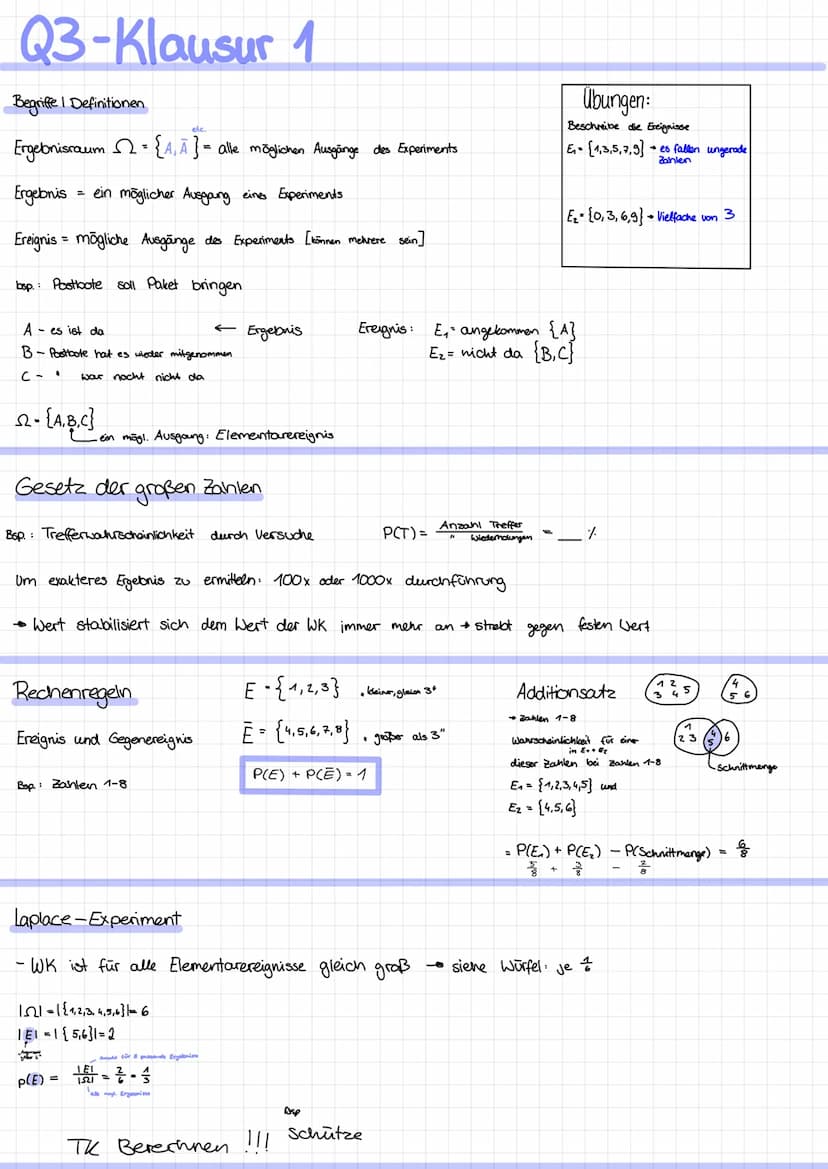 Q3-Klausur 1
Begriffe | Definitionen
etc.
Ergebnisraum Ω = {A, Ā} = alle möglichen Ausgänge des Experiments
Ergebnis = ein möglicher Ausgang eines Experiments
Ereignis = mögliche Ausgänge des Experiments [können mehrere sein]
bsp.: Postbote soll Paket bringen
A - es ist da ← Ergebnis
B - Postbote hat es wieder mitgenommen
C - " war nocht nicht da
Ereignis: E₁ = angekommen {A}
E₂ = nicht da {B,C}
Ω = {A,B,C}
ein mögl. Ausgang: Elementarereignis
Übungen:
Beschreibe die Ereignisse
E₁ = {1,3,5,7,9} → es fallen ungerade
Zahlen
E₂ = {0,3,6,9} → Vielfache von 3
Gesetz der großen Zahlen
Bsp.: Trefferwahrscheinlichkeit durch Versuche P(T) = Anzahl Treffer / " Wiederholungen = __ %
Um exakteres Ergebnis zu ermitteln: 100x oder 1000x durchführung
→ Wert stabilisiert sich dem Wert der WK immer mehr an → strebt gegen festen Wert
Rechenregeln
Ereignis und Gegenereignis
Bsp: Zahlen 1-8
E = {1,2,3} „kleiner, gleich 3"
Ē = {4,5,6,7,8} „größer als 3"
P(E) + P(Ē) = 1
Additionsatz
1 2 3 4 5
4 5 6
→ Zahlen 1-8
Wahrscheinlichkeit für eine
in E₁ + E₂
dieser Zahlen bei Zahlen 1-8
E₁ = {1,2,3,4,5} und
E₂ = {4,5,6}
1 2 3 4 5 6
Schnittmenge
= P(E₁) + P(E₂) − P(Schnittmenge) = 6/8
5/8 + 3/8 − 2/8
Laplace-Experiment
- WK ist für alle Elementarereignisse gleich groß → siehe Würfel: je 1/6
|Ω| = |{1,2,3,4,5,6}| = 6
|E| = |{5,6}| = 2
p(E) = |E|/|Ω| = 2/6 = 1/3
Anzahl für E passende Ergebnisse
alle mögl. Ergebnisse
TK Berechnen !!!
Bsp
Schütze